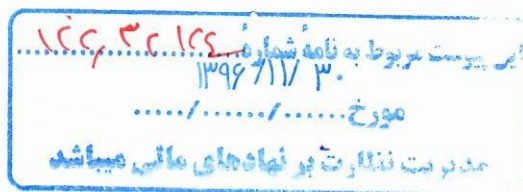 این پیوست مربوط به نامهٔ شمارهٔ ۱۲۲,۳۰۱۲۴
۱۳۹۶/۱۱/۳۰
مورخ ....../....../.....
مدیریت نظارت بر نهادهای مالی میباشد